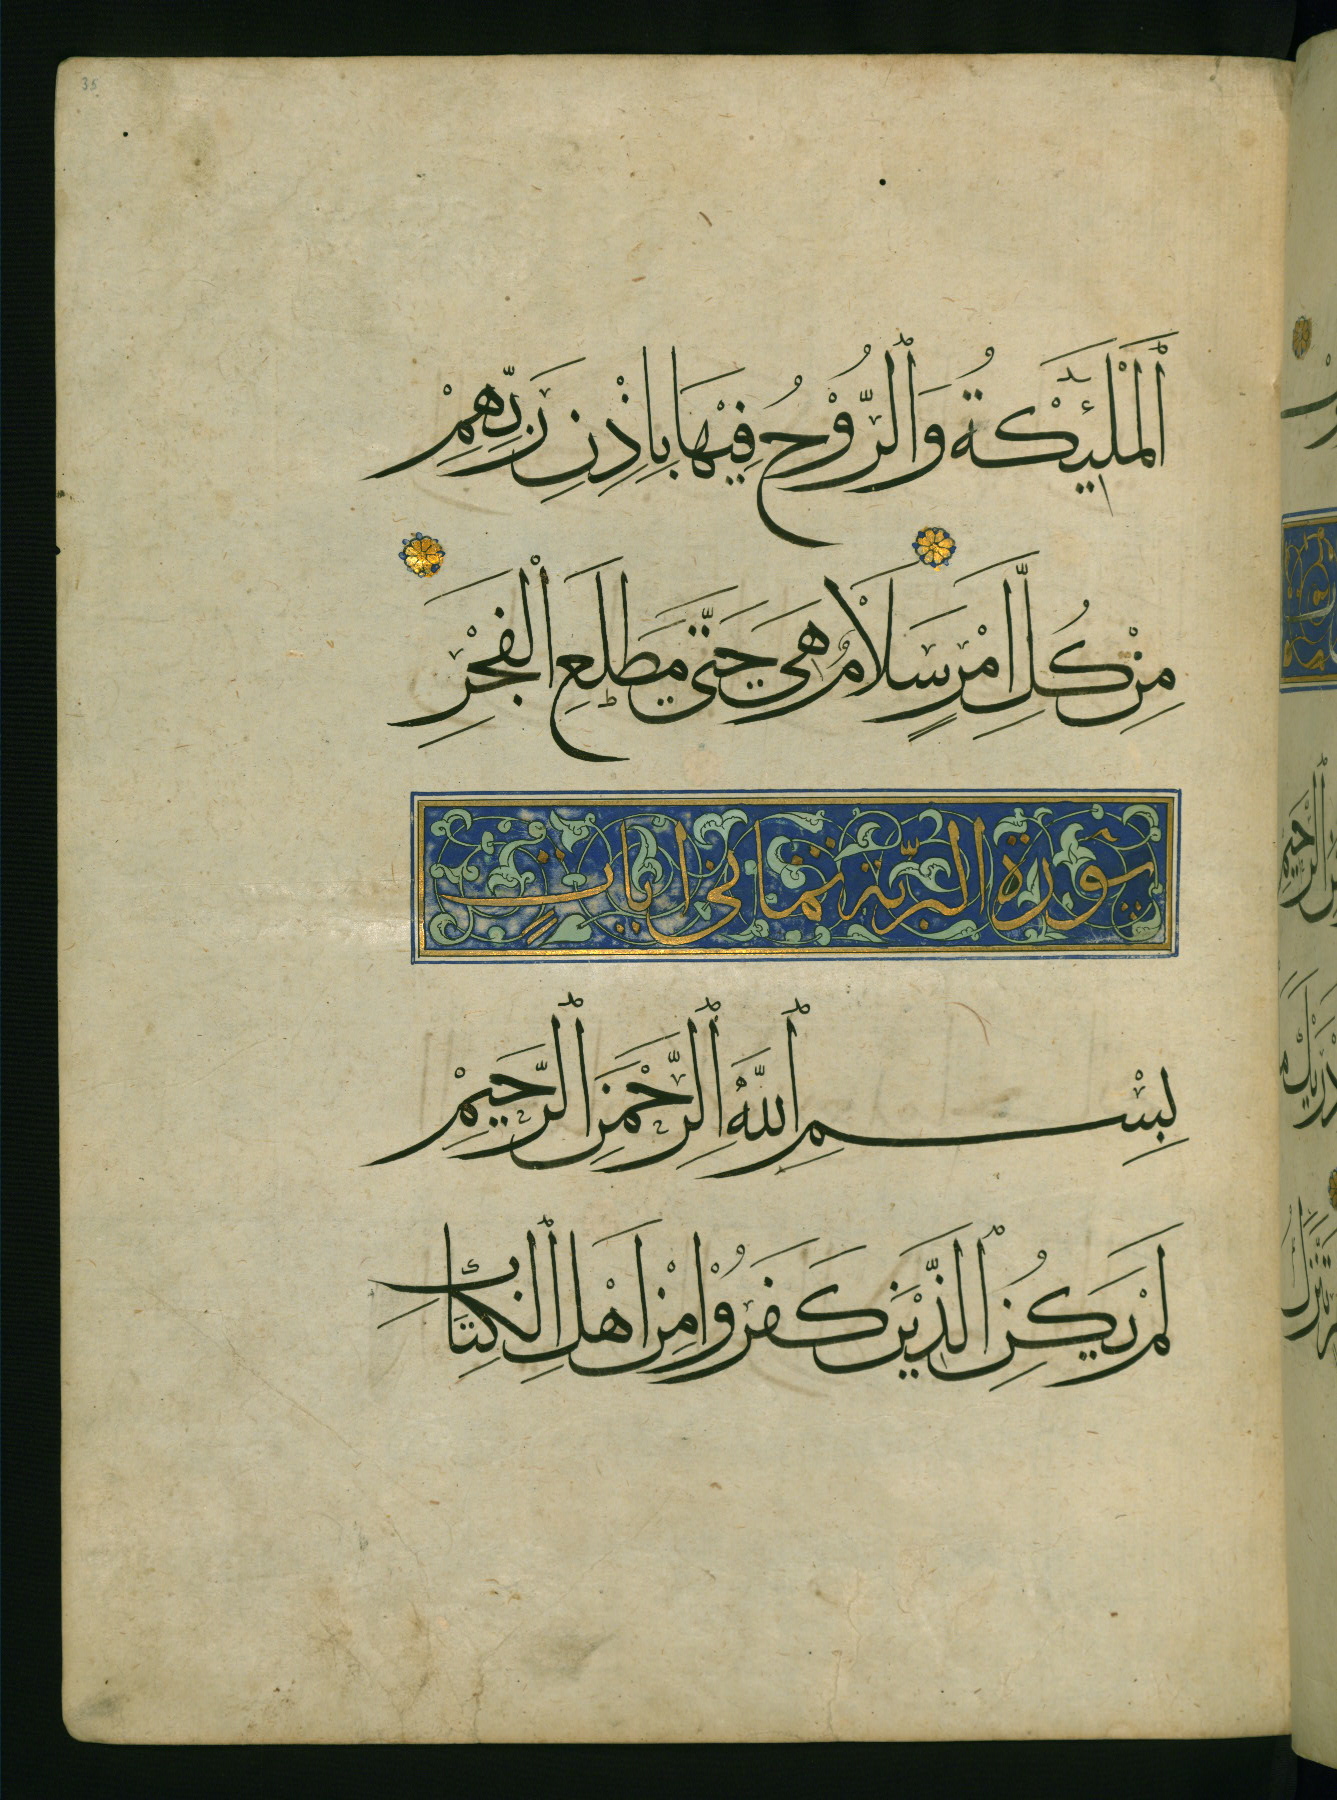 35
اَلْمَلٰئِكَةُ وَالرُّوْحُ فِيْهَا بِاِذْنِ رَبِّهِمْ
مِنْ كُلِّ اَمْرٍ سَلَامٌ هِيَ حَتّٰى مَطْلَعِ الْفَجْرِ
سورة البرية ثماني ايات
بِسْمِ اللّٰهِ الرَّحْمٰنِ الرَّحِيْمِ
لَمْ يَكُنِ الَّذِيْنَ كَفَرُوْا مِنْ اَهْلِ الْكِتَابِ